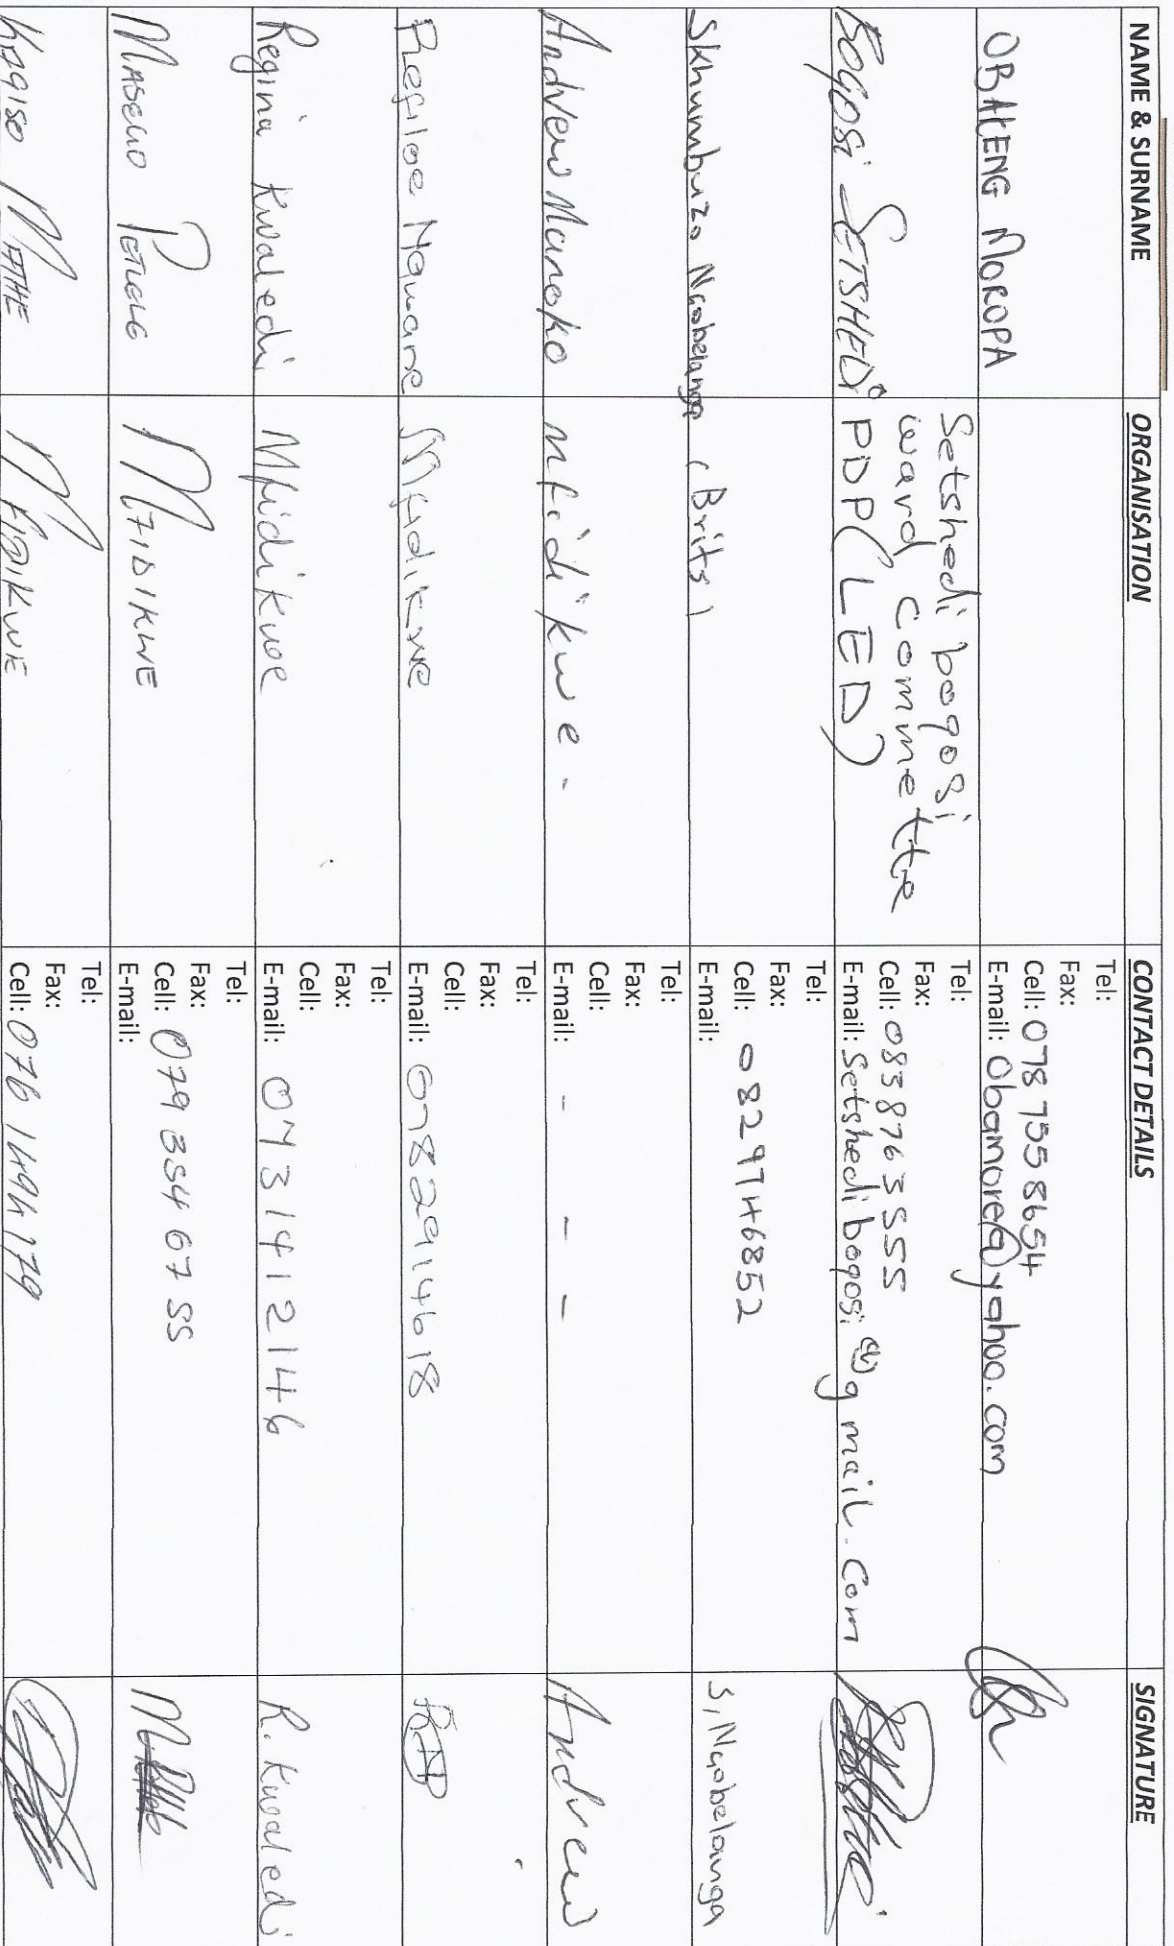 NAME & SURNAME ORGANISATION CONTACT DETAILS SIGNATURE
OBAKENG MOROPA
Tel:
Fax:
Cell: 078 755 8654
E-mail: Obamore@yahoo.com
BOGOSI SETSHEDI
Setshedi bogosi
ward committe
PDP(LED)
Tel:
Fax:
Cell: 083 876 3555
E-mail: Setshedibogosi@gmail.com
Skhumbuzo Nqobelanga (Brits)
Tel:
Fax:
Cell: 0829746852
E-mail:
S, Nqobelanga
Andrew Manoko mfidikwe -
Tel:
Fax:
Cell:
E-mail: - - -
Andrew
Refiloe Nawane Mfidikwe
Tel:
Fax:
Cell:
E-mail: 0782914618
Regina Kwaledi Mfidikwe
Tel:
Fax:
Cell:
E-mail: 0731412146
R. Kwaledi
MABELO MFIDIKWE
Tel:
Fax:
Cell: 079 354 67 55
E-mail:
KAGISO MATHE MFIDIKWE
Tel:
Fax:
Cell: 076 1494 179